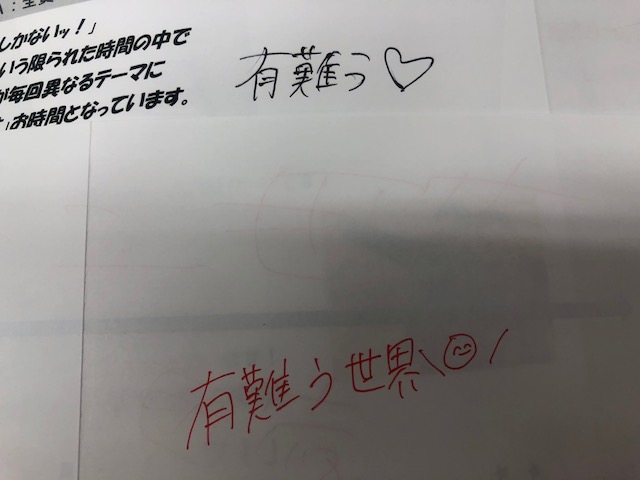 しかないッ！」
いう限られた時間の中で
が毎回異なるテーマに
」お時間となっています。
有難う♡
有難う世界\😊/